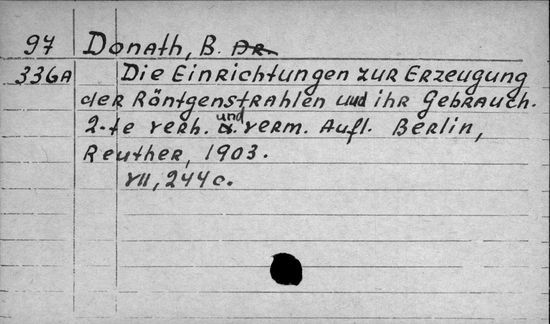 97 Donath, B. Dr.
336A Die Einrichtungen zur Erzeugung
der Röntgenstrahlen und ihr Gebrauch.
2-te verb. und verm. Aufl. Berlin,
Reuther, 1903.
VII, 244 c.